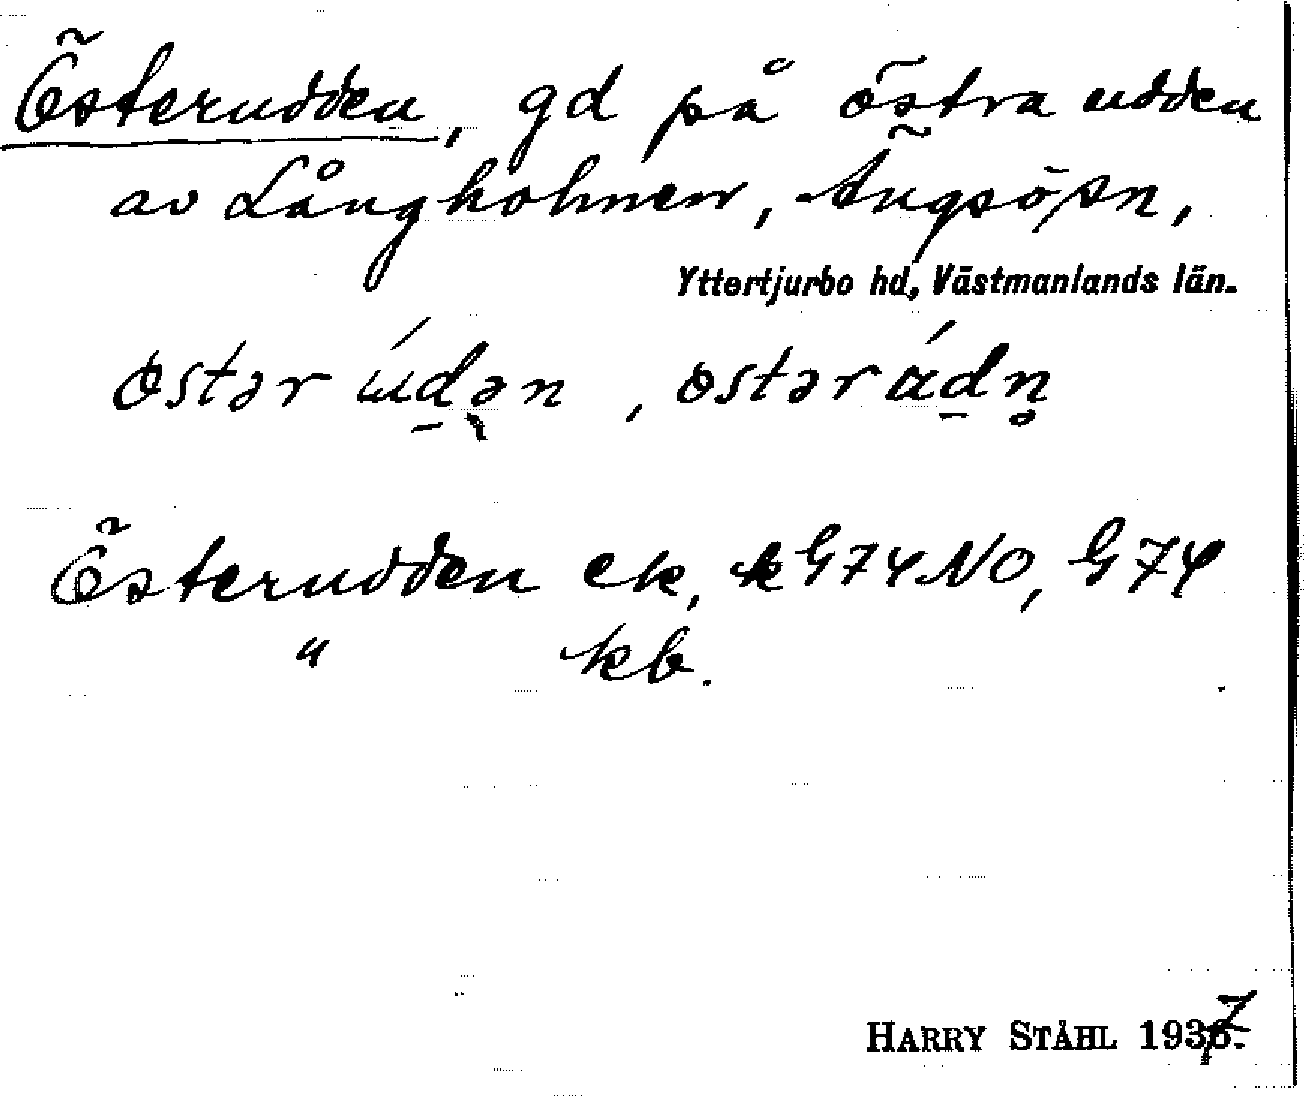 Österudden, gd på östra udden
av Långholmen, Ängsö sn,
Yttertjurbo hd, Västmanlands län.
ostər údən, ostərúdn̥
Österudden ek, k G74NO, G74
" kb.
HARRY STÅHL 1937.